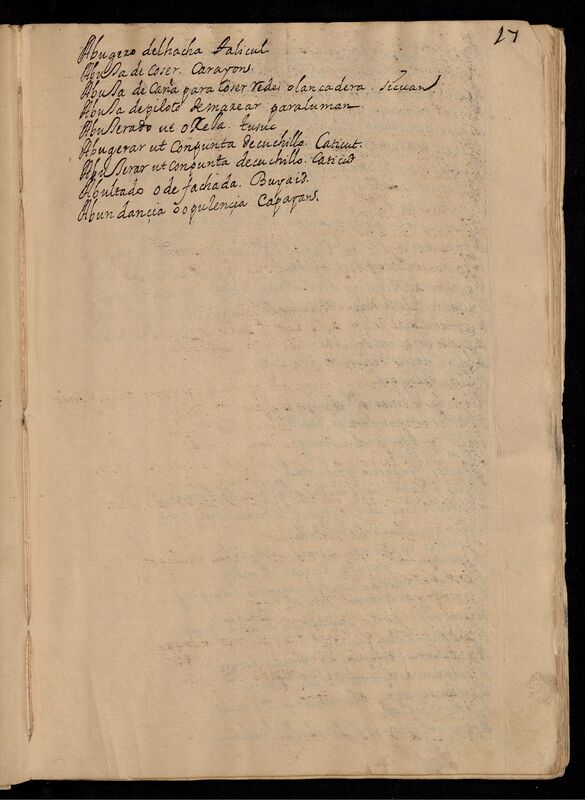 17
Abugero delhacha talicul
Abuja de coser. Carayom.
Abuja de Caña para coser redes o lançadera. Sicuan
Abuja depiloto demarear paraluman
Abujerado ut oreja. tusuc
Abugerar ut Conpunta decuchillo. Caticut.
Abujerar ut conpunta decuchillo. Caticud
Abultado o de fachada. Buyaid.
Abundançia o opulençia Caparyans.